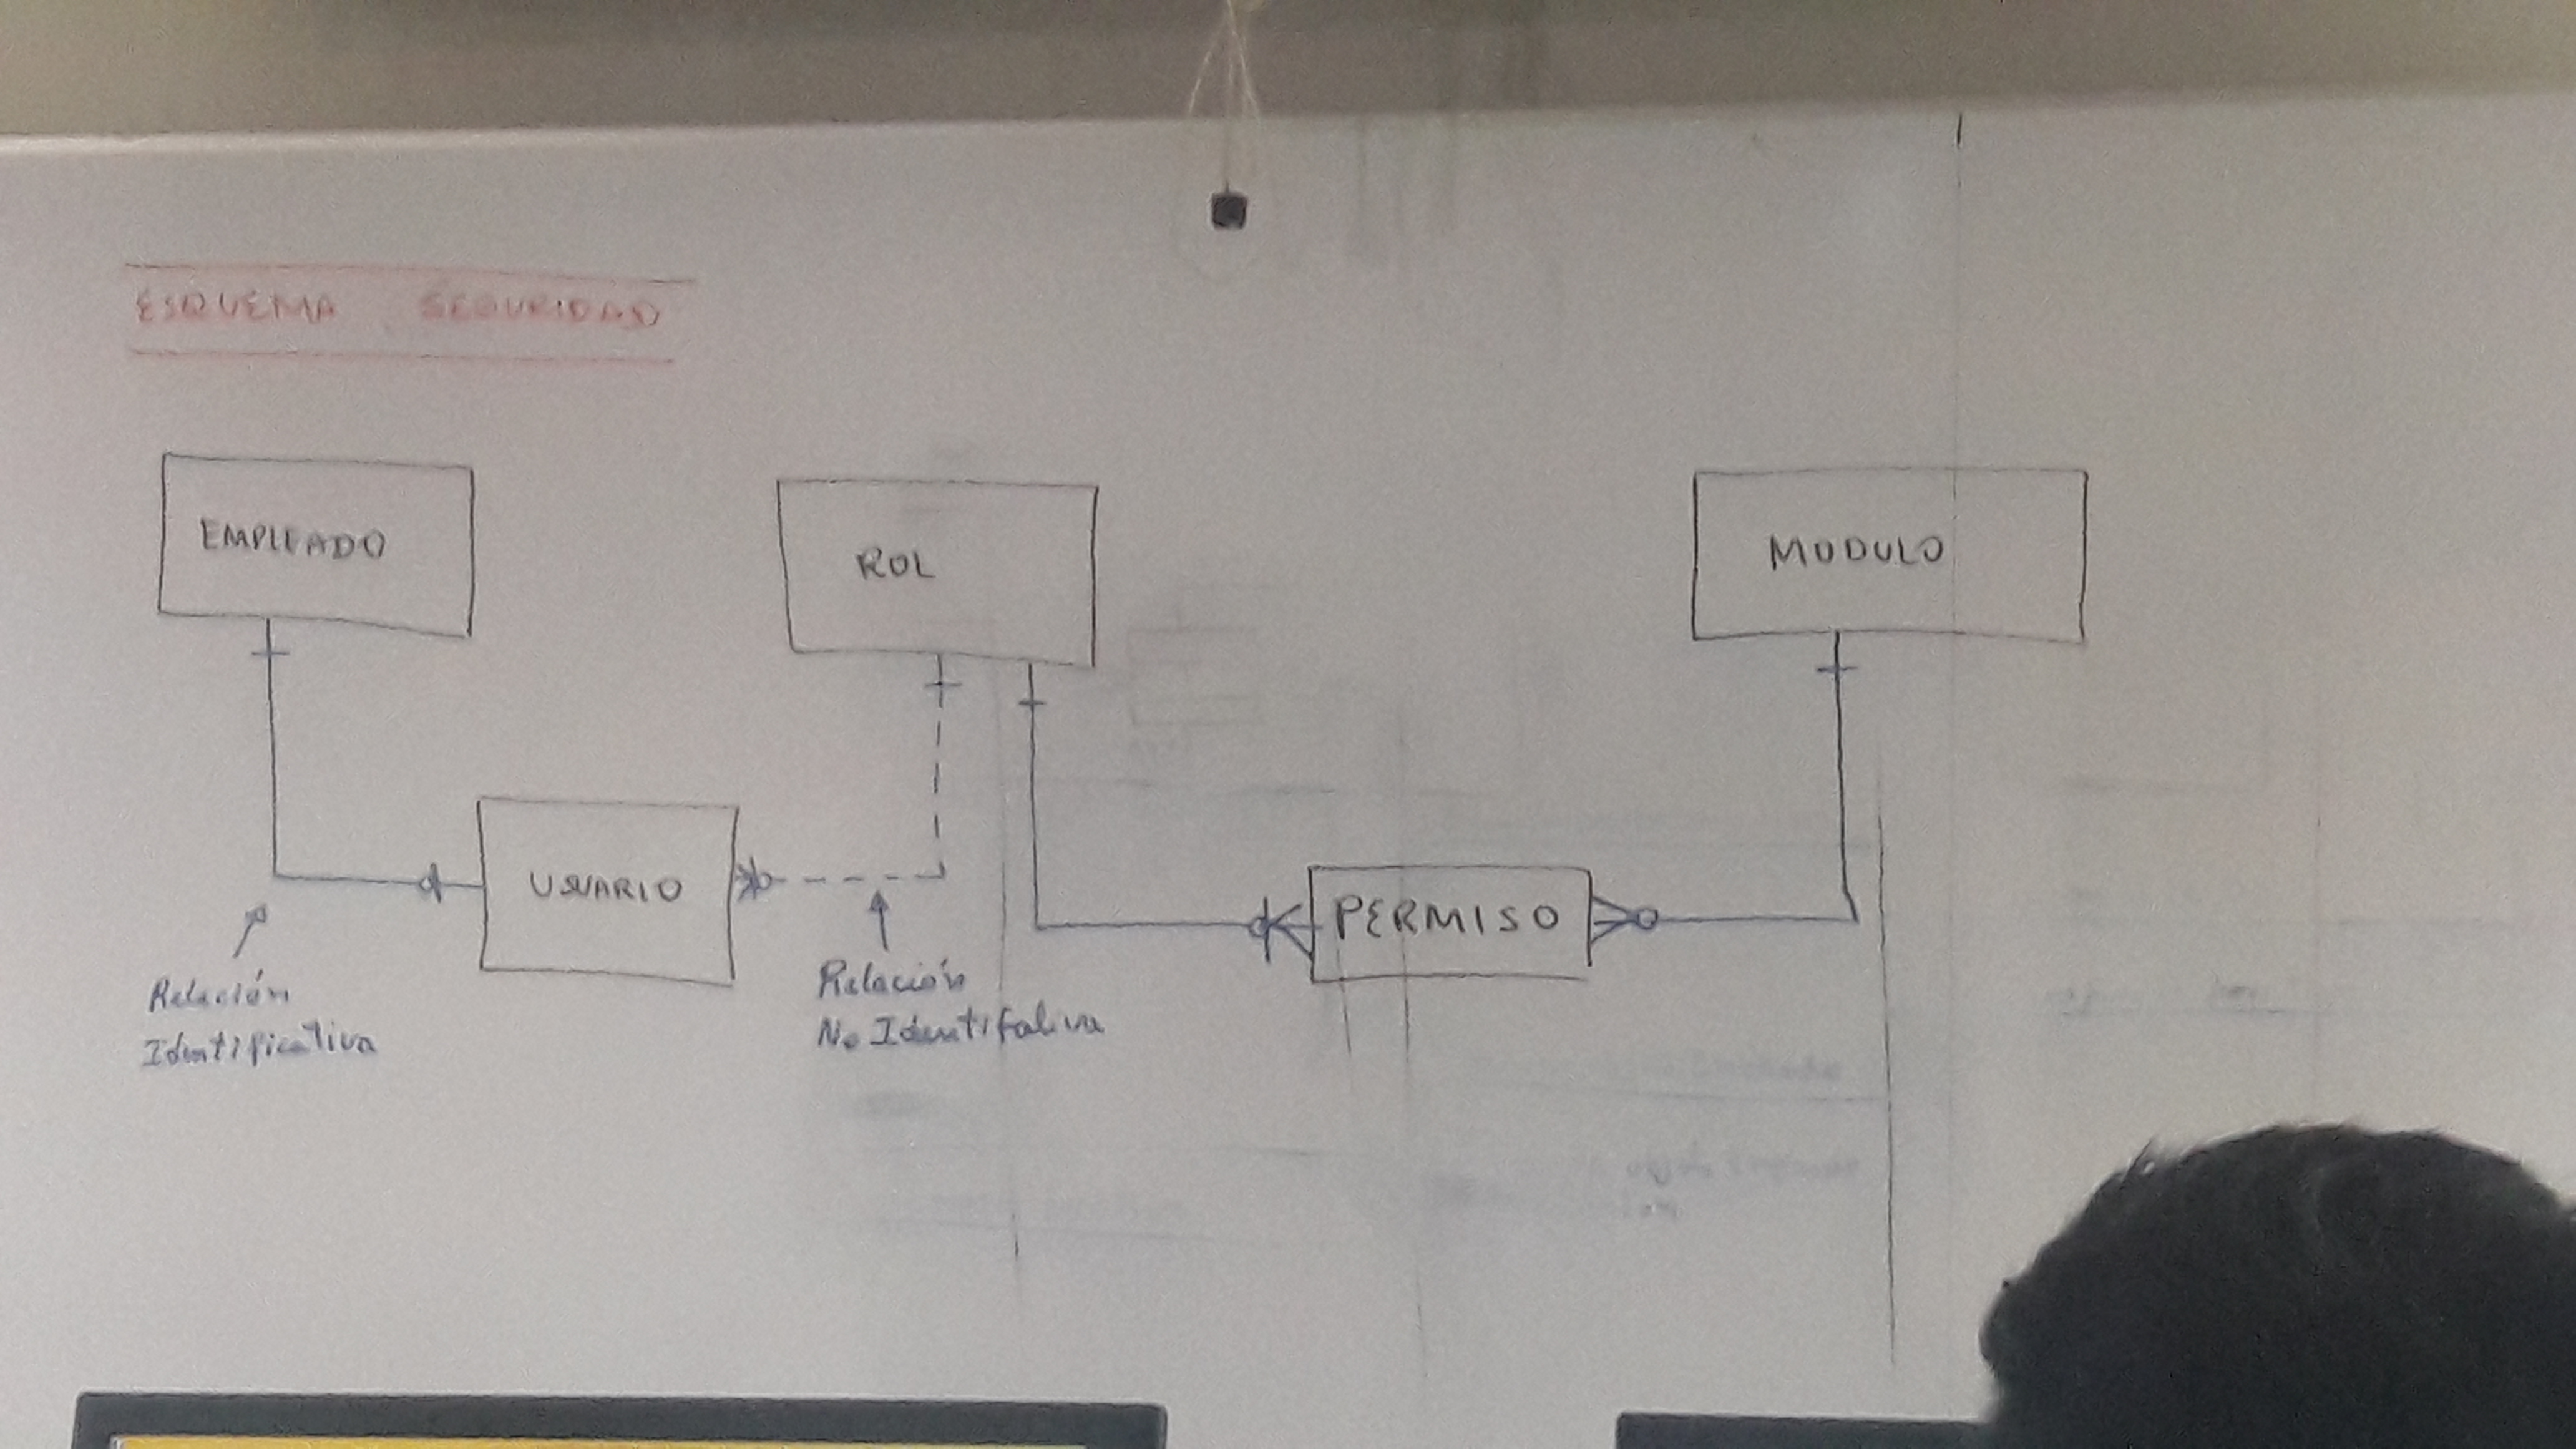 ESQUEMA SEGURIDAD
EMPLEADO
ROL
MODULO
USUARIO
PERMISO
Relación
Identificativa
Relación
No Identifativa